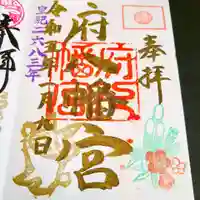 奉拝
府八幡宮
令和五年一月九日
皇紀二六八三年